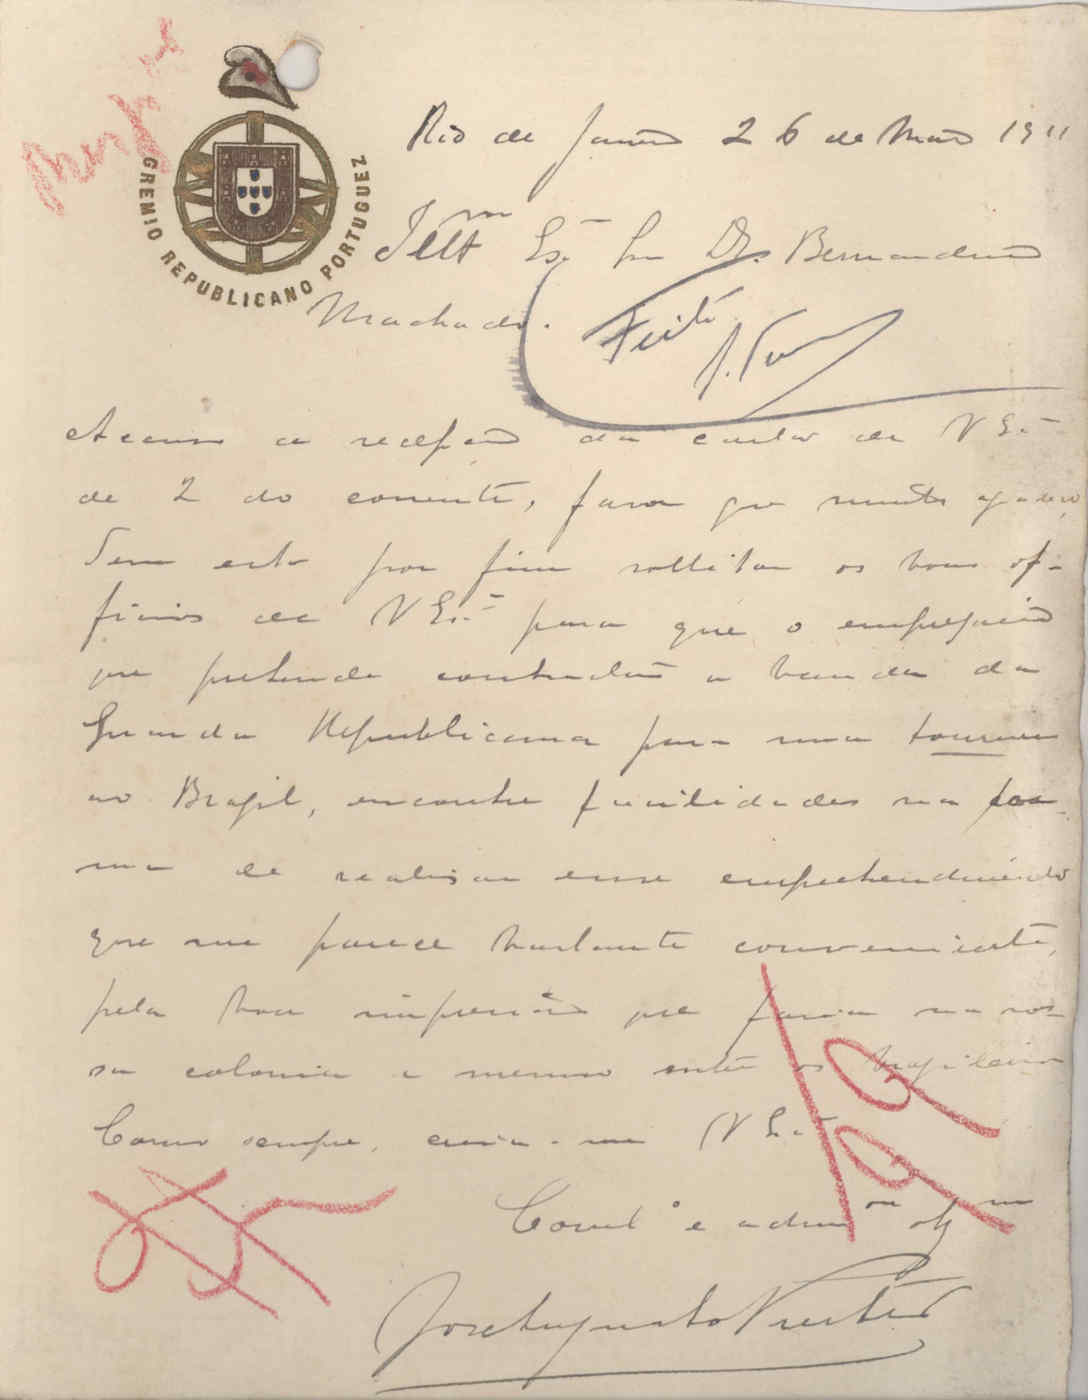 GREMIO REPUBLICANO PORTUGUEZ
Rio de Janeiro 26 de Maio 1911
Illmº Exº Snr Dr. Bernardino
Machado.
Feito
Accuso a recepção da carta de V Exª
de 2 do corrente, favor que muito agradeço
Tem esta por fim sollicitar os bons of-
ficios de V Exª para que o emprezario
que pretende contractar a banda da
Guarda Republicana para uma tournée
ao Brazil, encontre facilidades na for-
ma de realisar esse emprehendimento
que me parece bastante conveniente,
pela boa impressão que faria na nos-
sa colonia e mesmo entre os brazileiros
Como sempre, creia-me V Exª
Correlº e admor obgmo
José Augusto Prestes